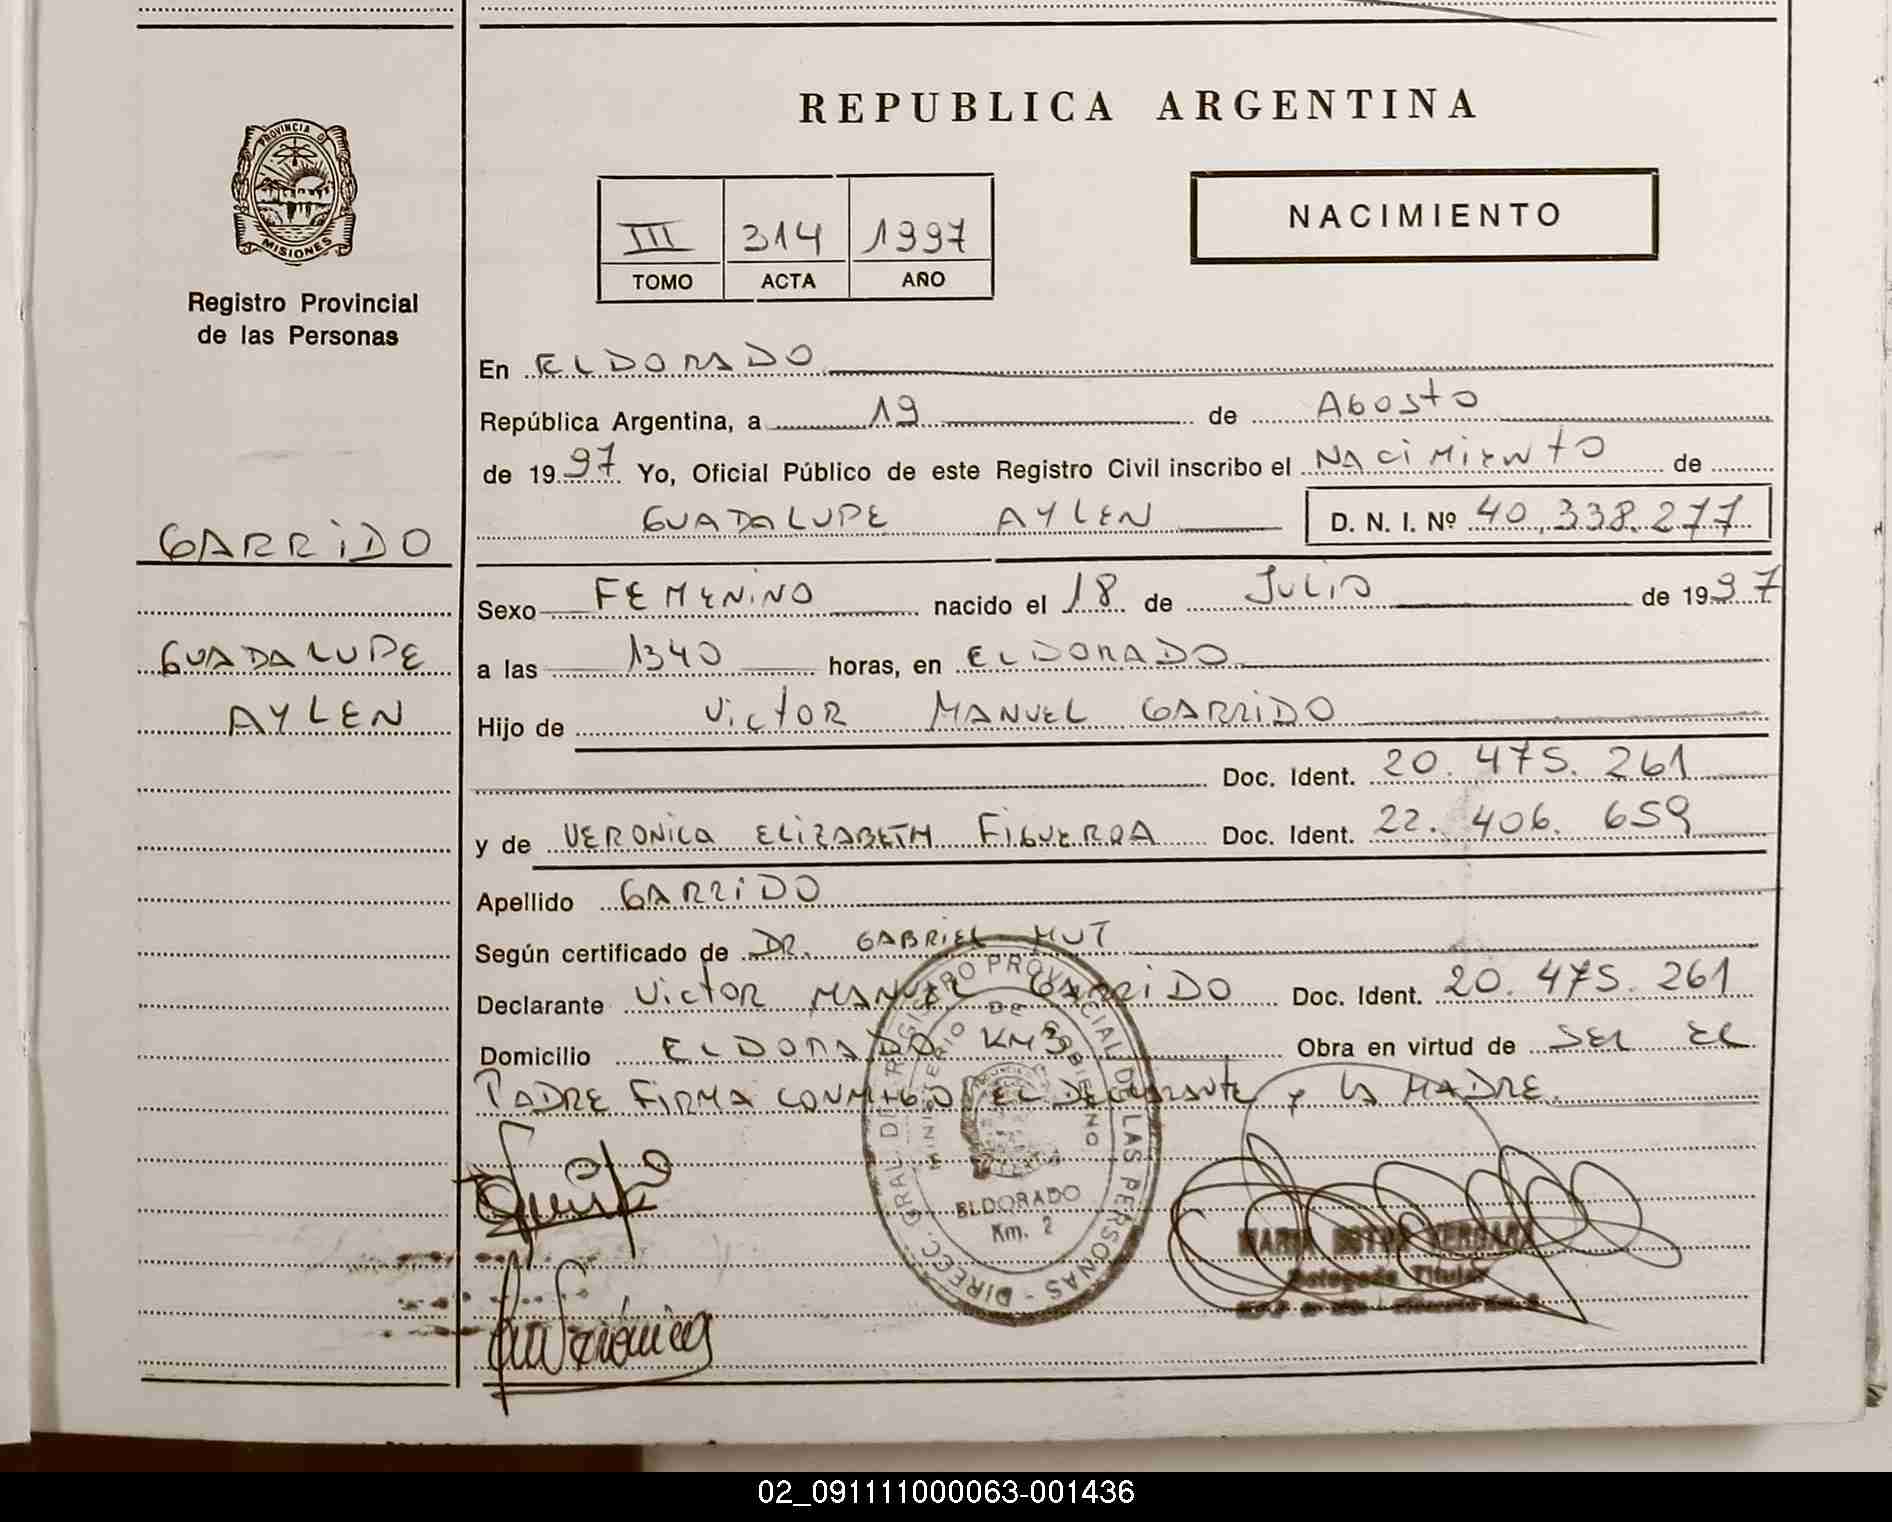 REPUBLICA ARGENTINA
PROVINCIA DE
MISIONES
Registro Provincial
de las Personas
III 314 1997
TOMO ACTA AÑO
NACIMIENTO
En ELDORADO
República Argentina, a 19 de Agosto
de 1997 Yo, Oficial Público de este Registro Civil inscribo el NACIMIENTO de
GUADALUPE AYLEN D. N. I. Nº 40.338.277
GARRIDO
Sexo FEMENINO nacido el 18 de JULIO de 1997
GUADALUPE
AYLEN
a las 1340 horas, en ELDORADO
Hijo de VICTOR MANUEL GARRIDO
Doc. Ident. 20.475.261
y de VERONICA ELIZABETH FIGUEROA Doc. Ident. 22.406.659
Apellido GARRIDO
Según certificado de DR. GABRIEL MUT
Declarante VICTOR MANUEL GARRIDO Doc. Ident. 20.475.261
Domicilio ELDORADO KM3 Obra en virtud de SER EL
PADRE FIRMA CONMIGO EL DECLARANTE y LA MADRE.
DIREC. GRAL DE REGISTRO PROVINCIAL DE LAS PERSONAS -
MINISTERIO DE GOBIERNO
ELDORADO
Km. 2
Verónica
Titular
02_091111000063-001436